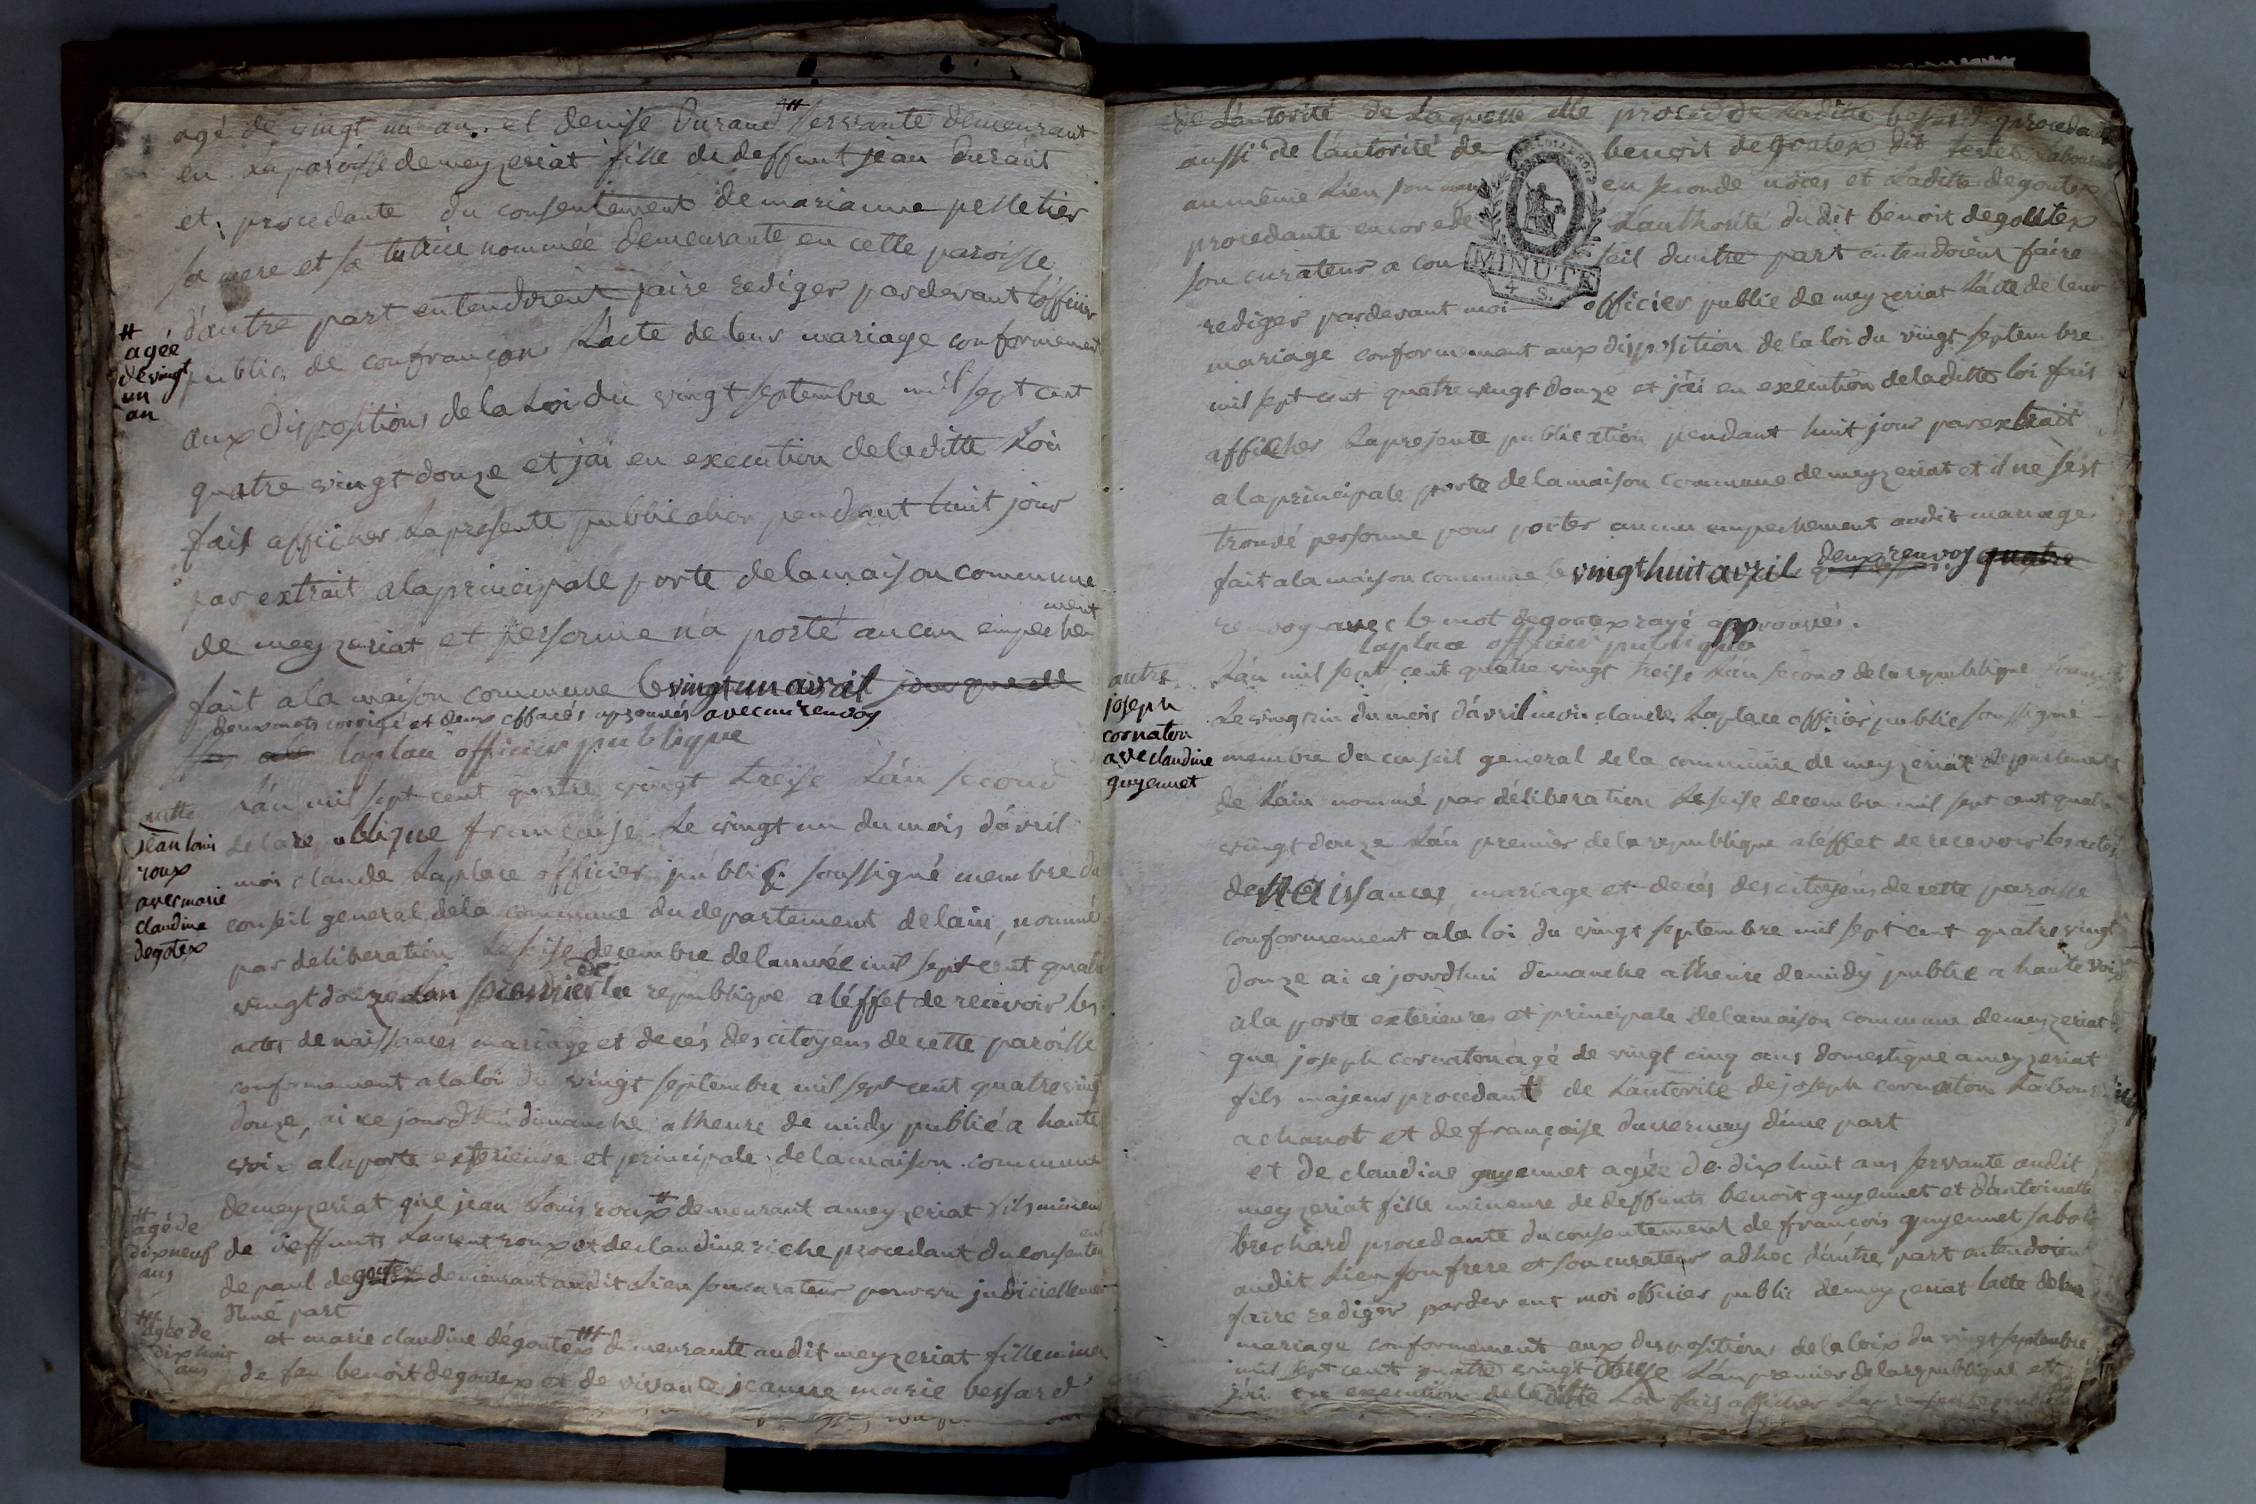 agé de vingt un an. et denise Durand # servante demeurant
en la paroisse de meyzeriat fille de deffunt jean durant
et procedante du consentement de marianne pelletier
sa mere et sa tutrice nommée demeurante en cette paroisse
d'autre part entendoient faire rediger pardevant l'officier
public de confrançon L'acte de leur mariage conformement
aux dispositions de la Loi du vingt septembre mil sept cent
quatre vingt douze et j'ai en execution de laditte Loi
fait afficher La presente publication pendant huit jour
par extrait a la principale porte de la maison commune
de meyzeriat et personne n'a porté aucun empeche
ment
fait a la maison commune le vingt un avril
deux mots corrigé et deux effacés aprouvés avec un renvoy
laplace officier publique
#
agée
de vingt
un
an
L'an mil sept cent quatre vingt treise L'an second
jean loui
roux
avec marie
claudine
degotex
de la republique française Le vingt un du mois d'avril
moi claude Laplace officier public soussigné membre du
conseil general de la commune du departement de lain, nommé
par deliberation Le seise decembre de l'année mil sept cent quatre
vingt douze L'an premier de la republique a l'effet de recevoir les
actes de naissances mariage et decés des citoyens de cette paroisse
conformement a la loi du vingt septembre mil sept cent quatre vingt
douze, ai ce jourd'hui dimanche a l'heure de midy publié a haute
voix a la porte exterieure et principale de la maison commune
de meyzeriat que jean Louis roux # demeurant a meyzeriat fils mineur
de deffunts Laurent roux et de claudine riche procedant du consentem
ent
de paul degoutex demeurant audit Lieu son curateur pourvu judiciellement
d'une part
et marie claudine dégoutex ### demeurante audit meyzeriat fille mineur
de feu benoit degoutex et de vivante jeanne marie bessard
#
agé de
dix neuf
ans
###
agée de
dix huit
ans
de L'autorité de Laquelle elle procedde Ladite bessard procedante
aussi de l'autorité de benoit degoutex dit
au même Lieu son mari en seconde nôces et Ladite degoutex
procedante encor de L'authorité dudit benoit degoutex
son curateur a con seil d'autre part entendoient faire
MINUTE
4 S.
rediger pardevant moi officier public de meyzeriat L'acte de leur
mariage conformement aux disposition de la loi du vingt septembre
mil sept cent quatre vingt douze et j'ai en execution de laditte loi fait
afficher La presente publication pendant huit jour par extrait
a la principale porte de la maison commune de meyzeriat et il ne s'est
trouvé personne pour porter aucun empechement audit mariage
fait a la maison commune le vingt huit avril deux renvoy quatre
renvoy avec le mot degoutex rayé approuvés.
laplace officier publique
autre
joseph
cornaton
avec claudine
guyennet
L'an mil sept cent quatre vingt treise L'an second de la republique
Le vingt un du mois d'avril moi claude Laplace officier public soussigné
membre du conseil general de la commune de meyzeriat departement
de L'ain nommé par déliberation Le seise decembre mil sept cent quatre
vingt douze L'an premier de la republique a l'effet de recevoir les actes
de naissances, mariage et decés des citoyens de cette paroisse
conformement a la loi du vingt septembre mil sept cent quatre vingt
douze ai ce jourd'hui dimanche a l'heure de midy publié a haute voix
a la porte exterieures et principale de la maison commune de meyzeriat
que joseph cornaton agé de vingt cinq ans domestique a meyzeriat
fils majeur procedant de L'autorité de joseph cornaton Laboureur
a chanot et de françoise duvernay d'une part
et de claudine guyennet agée de dix huit ans servante audit
meyzeriat fille mineure de deffunts benoit guyennet et d'antoinette
brechard procedante du consentement de françois guyennet
audit Lieu son frere et son curateur adhoc d'autre part entendoient
faire rediger pardevant moi officier public de meyzeriat lacte de leur
mariage conformement aux disposition de la loix du vingt septembre
mil sept cent quatre vingt douse L'an premier de la republique et
j'ai en execution de laditte Loi fait afficher La presente